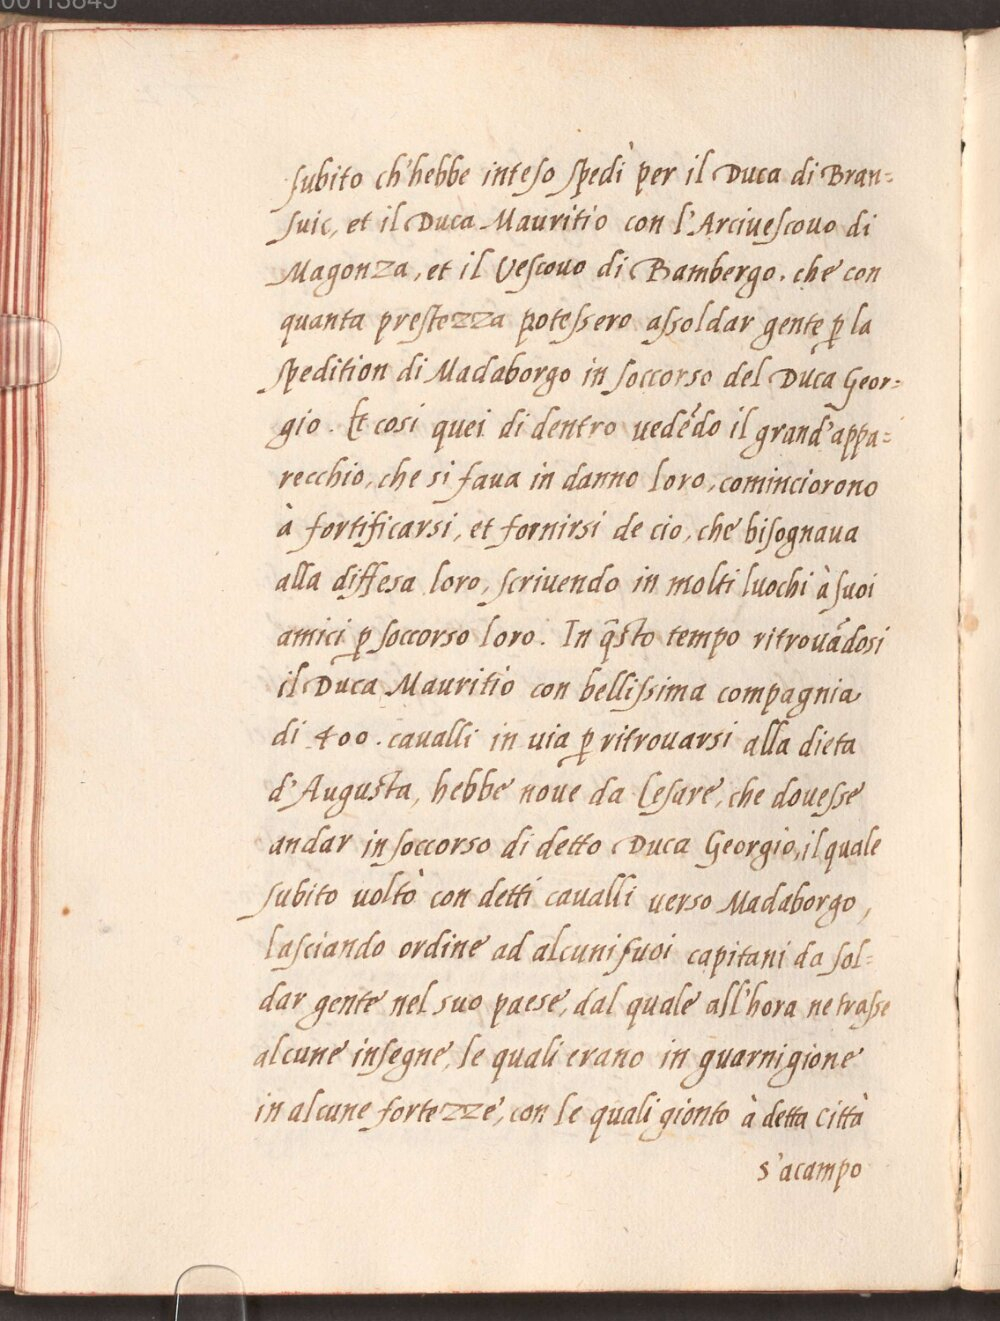 00113845
subito ch'hebbe inteso spedì per il Duca di Bran=
suic, et il Duca Mauritio con l'Arciuescouo di
Magonza, et il Vescouo di Bambergo. che con
quanta prestezza potessero assoldar gente ꝑ la
spedition di Madaborgo in soccorso del Duca Geor=
gio. Et cosi quei di dentro uedẽdo il grand'appa=
recchio, che si faua in danno loro, cominciorono
à fortificarsi, et fornirsi de cio, che bisognaua
alla diffesa loro, scriuendo in molti luochi à suoi
amici ꝑ soccorso loro. In q̃sto tempo ritrouãdosi
il Duca Mauritio con bellissima compagnia
di 400. caualli in uia ꝑ ritrouarsi alla dieta
d'Augusta, hebbe noue da Cesare, che douesse
andar in soccorso di detto Duca Georgio, il quale
subito uoltò con detti caualli uerso Madaborgo,
lasciando ordine ad alcuni suoi capitani da sol=
dar gente nel suo paese, dal quale all'hora ne trasse
alcune insegne, le quali erano in guarnigione
in alcune fortezze, con le quali gionto à detta Città
s'acampo